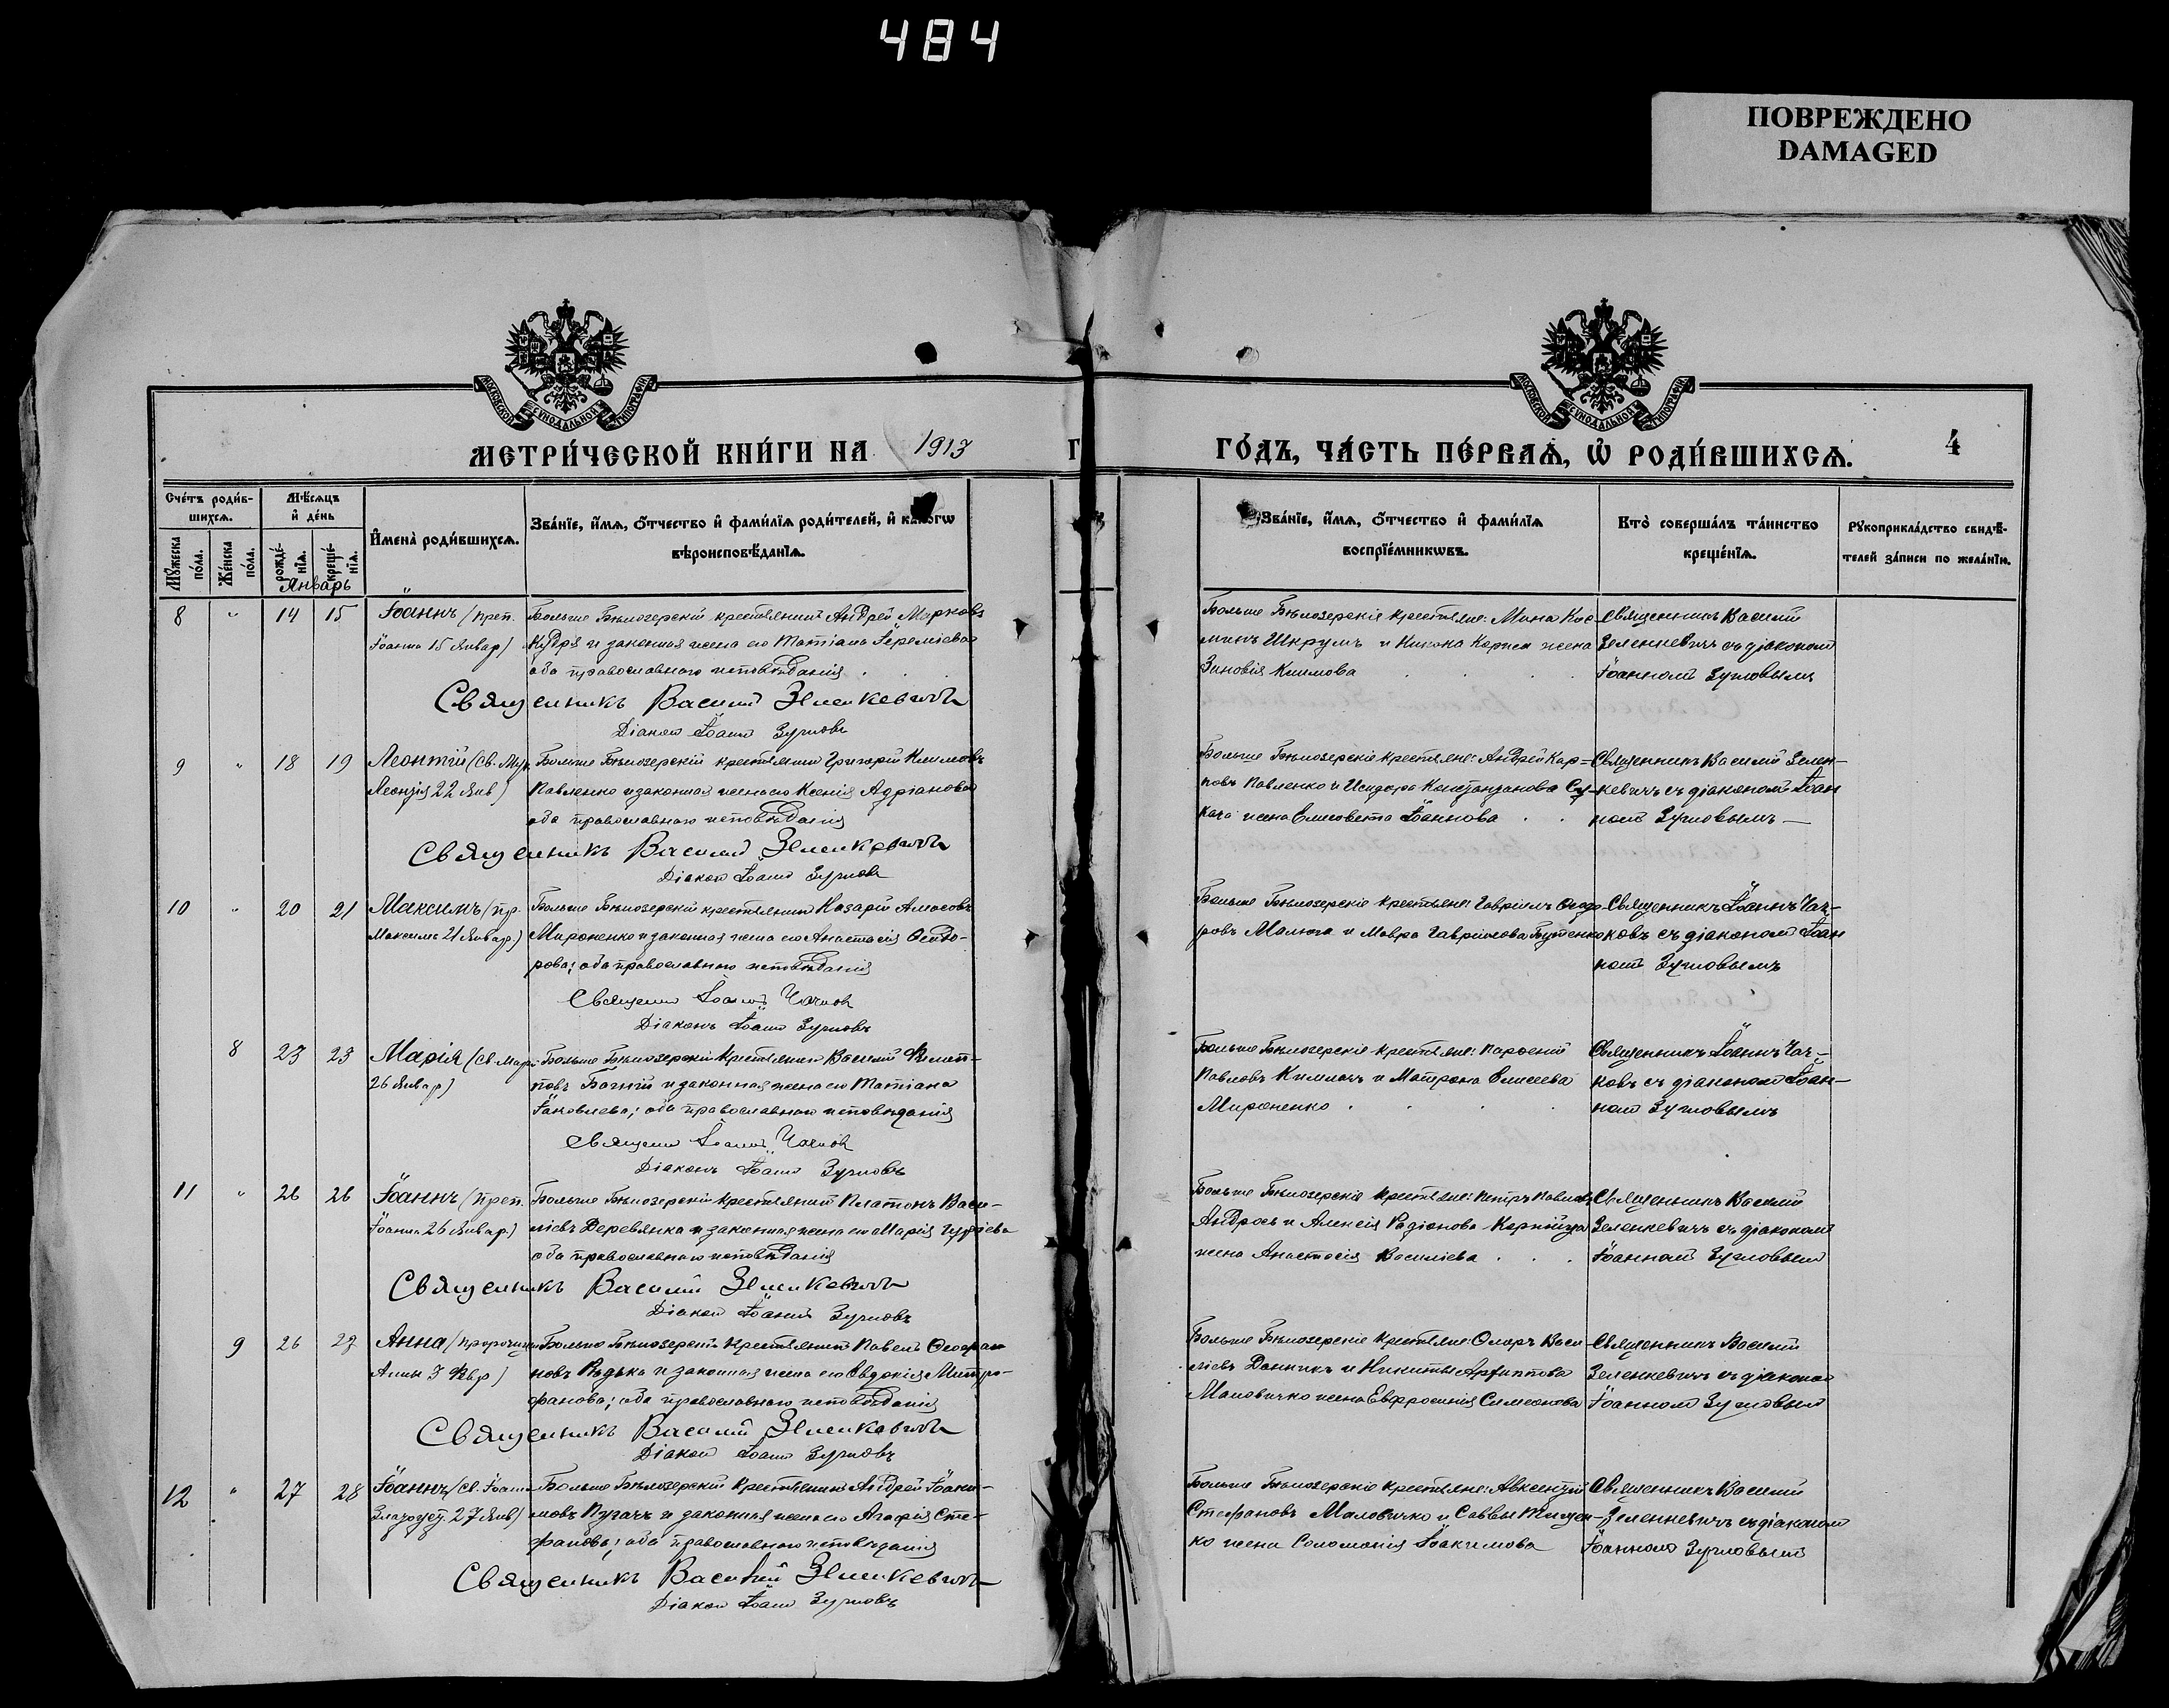 484
ПОВРЕЖДЕНО
DAMAGED
МОСКОВСКОЙ СѴНОДАЛЬНОЙ ТИПОГРАФІИ
МОСКОВСКОЙ СѴНОДАЛЬНОЙ ТИПОГРАФІИ
МЕТРИ́ЧЕСКОЙ КНИ́ГИ НА 1913 Г
ГО́ДЪ, ЧА́СТЬ ПЕ́РВАѦ, Ѽ РОДИ́ВШИХСѦ. 4
Сче́тъ роди́в-
шихсѧ.
Мꙋ́жеска по́ла.
Же́нска по́ла.
Мѣ́сѧцъ и҆ де́нь
рожде́-нїѧ.
креще́-нїѧ.
И҆мена̀ роди́вшихсѧ.
Зва́нїе, и҆́мѧ, ѻ҆́тчество и҆ фами́лїѧ роди́телей, и҆ како́гѡ
вѣроисповѣ́данїѧ.
Зва́нїе, и҆́мѧ, ѻ҆́тчество и҆ фами́лїѧ
воспрїе́мникѡвъ.
Кто̀ соверша́лъ та́инство
креще́нїѧ.
Рꙋкоприкла́дство свидѣ́-
телей за́писи по жела́нїю.
Январь
8 " 14 15 Іоаннъ (преп. Больше Бѣлозерскій крестьянинъ Андрей Марковъ
Іоанна 15 Январ) Кудря и законная жена его Татіана Іереміева
оба православнаго исповѣданія
Священникъ Василій Зеленкевичъ
Діаконъ Іоаннъ Зугловъ
Больше Бѣлозерскіе крестьяне: Мина Кос-
минъ Шкрумъ и Никона жена
Зиновія Климова
Священникъ Василій
Зеленкевичъ съ діакономъ
Іоанномъ Зугловымъ
9 " 18 19 Леонтій (св. Муч. Больше Бѣлозерскій крестьянинъ Григорій Климовъ
Леонтія 22 Янв) Павленко и законная жена его Ксенія Адріанова
оба православнаго исповѣданія
Священникъ Василій Зеленкевичъ
Діаконъ Іоаннъ Зугловъ
Больше Бѣлозерскіе крестьяне: Андрей Кар-
повъ Павленко и Исидора Константинова Су-
кача жена Елисавета Іоаннова
Священникъ Василій Зелен-
кевичъ съ діакономъ Іоан
номъ Зугловымъ
10 " 20 21 Максимъ (пр. Больше Бѣлозерскій крестьянинъ Назарій Амосовъ
Максима 21 Январ.) Мироненко и законная жена его Анастасія Ѳеодо-
рова; оба православнаго исповѣданія
Священникъ Іоаннъ Чачковъ
Діаконъ Іоаннъ Зугловъ
Больше Бѣлозерскіе крестьяне: Гавріилъ Ѳеодо
ровъ Малюга и Мавра Гавріилова Бутенко
Священникъ Іоаннъ Чач-
ковъ съ діакономъ Іоан
номъ Зугловымъ
8 23 23 Марія (св. Марі Больше Бѣлозерскій крестьянинъ Василій Филип-
26 Январ) повъ Богній и законная жена его Татіана
Іаковлева; оба православнаго исповѣданія
Священникъ Іоаннъ Чачковъ
Діаконъ Іоаннъ Зугловъ
Больше Бѣлозерскіе крестьяне: Парѳеній
Павловъ и Матрона Елисеева
Мироненко
Священникъ Іоаннъ Чач-
ковъ съ діакономъ Іоан-
номъ Зугловымъ
11 " 26 26 Іоаннъ (преп. Больше Бѣлозерскій крестьянинъ Платонъ Васи-
Іоанна 26 Январ.) ліевъ Деревянка и законная жена его Марія
оба православнаго исповѣданія
Священникъ Василій Зеленкевичъ
Діаконъ Іоаннъ Зугловъ
Больше Бѣлозерскіе крестьяне: Петръ Павловъ
Андрось и Алексія Радіонова Корнійца
жена Анастасія Василіева
Священникъ Василій
Зеленкевичъ съ діакономъ
Іоанномъ Зугловымъ
9 26 27 Анна (пророчицы Больше Бѣлозерскій крестьянинъ Павелъ Ѳеофан
Анны 3 Февр) новъ Радька и законная жена его Евдокія Митро-
фанова; оба православнаго исповѣданія
Священникъ Василій Зеленкевичъ
Діаконъ Іоаннъ Зугловъ
Больше Бѣлозерскіе крестьяне: Васи
ліевъ Данникъ и Никиты Архиппова
Маловичко жена Евфросинія Симеонова
Священникъ Василій
Зеленкевичъ съ діакономъ
Іоанномъ Зугловымъ
12 " 27 28 Іоаннъ (св. Іоанна Больше Бѣлозерскій крестьянинъ Андрей Іоаки-
Златоуст. 27 Янв) мовъ Пугачъ и законная жена его Агафія Сте-
фанова; оба православнаго исповѣданія
Священникъ Василій Зеленкевичъ
Діаконъ Іоаннъ Зугловъ
Больше Бѣлозерскіе крестьяне: Авксентій
Стефановъ Маловичко и Саввы Тищен-
ко жена Соломонія Іоакимова
Священникъ Василій
Зеленкевичъ съ діакономъ
Іоанномъ Зугловымъ